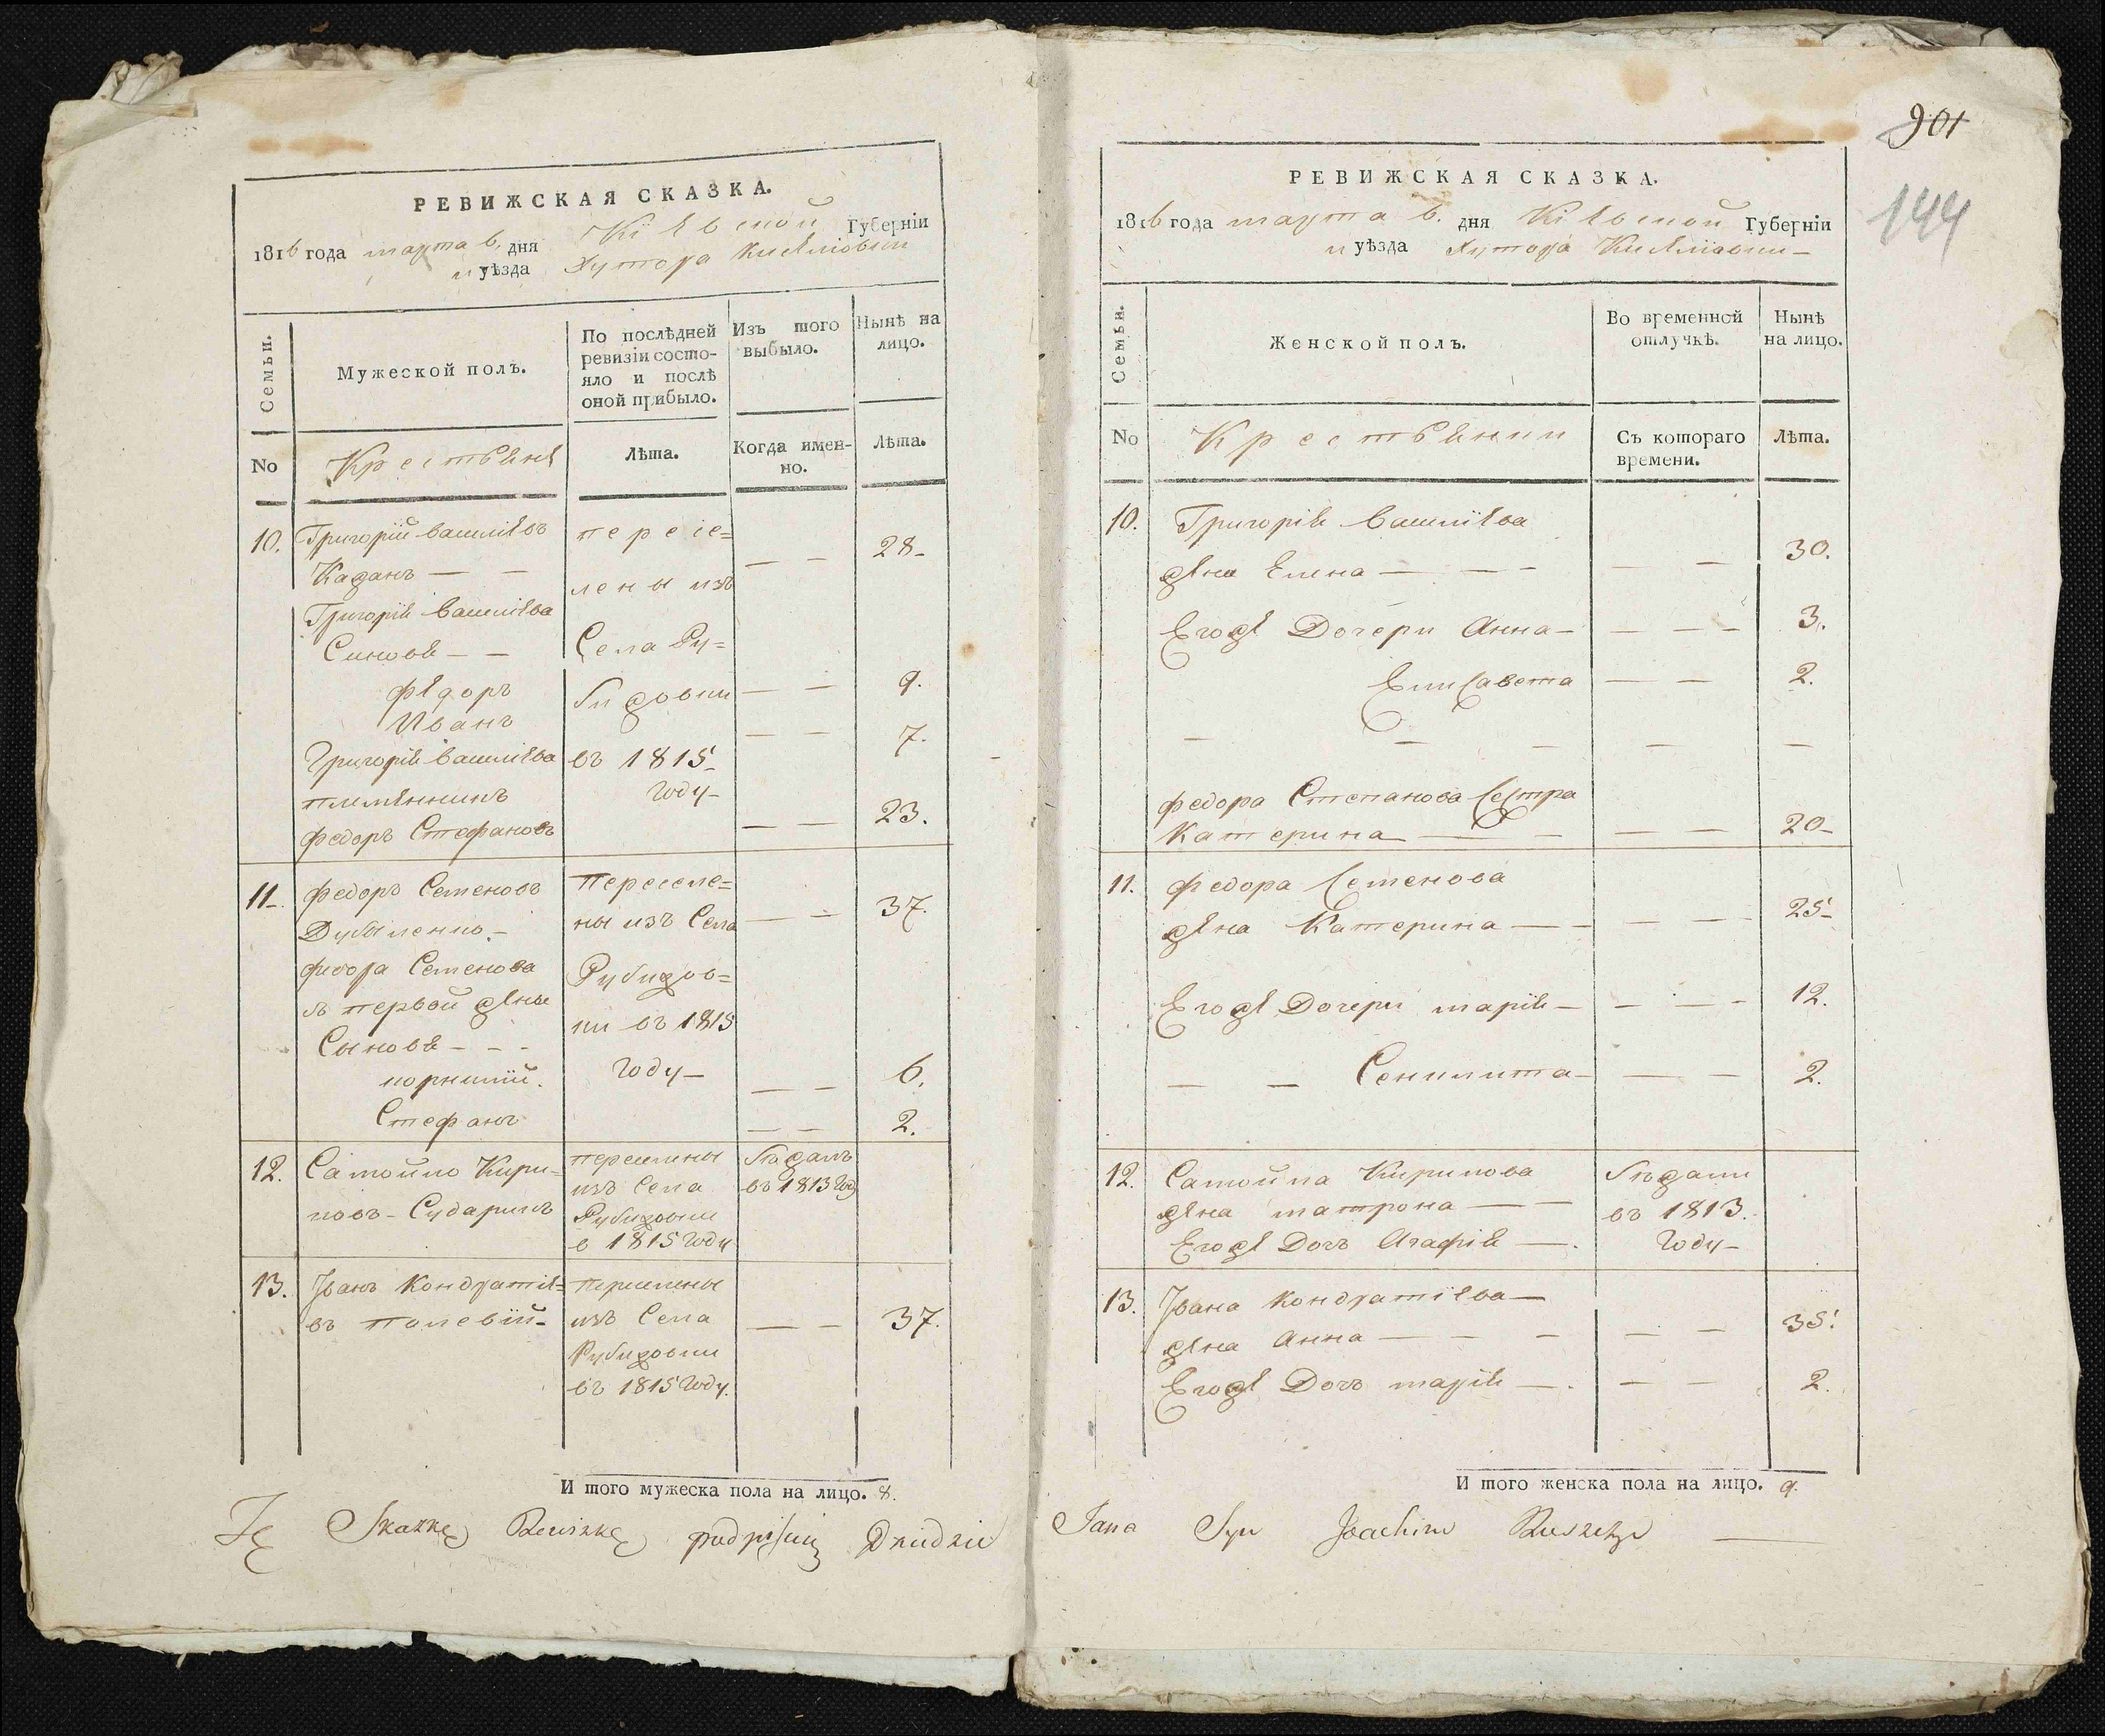 РЕВИЖСКАЯ СКАЗКА.
1816 года марта 6. дня Кіевской Губерніи
и уѣзда Хутора
Семьи.
Мужеской полъ.
По послѣдней
ревизіи состо-
яло и послѣ
оной прибыло.
Изъ того
выбыло.
Нынѣ на
лицо.
No
Крестьяне
Лѣта.
Когда имен-
но.
Лѣта.
10. Григорій Василіевъ
Казанъ — —
пересе=
лены изъ
— — 28-
Григорія Василіева
Синовя — —
Села Ру=
Федоръ
бижовки
— — 9.
Иванъ
— — 7.
Григорія Василіева
въ 1815-
племенникъ
году-
Федоръ Стефановъ
— — 23.
11-. Федоръ Семеновъ
Переселе=
ны изъ Села
— — 37.
Федора Семенова
Рубижов=
съ первой жены
ки въ 1815
Сыновя - - -
году-
корнилій.
— — 6.
Стефанъ
— — 2.
12. Самойло Кири=
ловъ - Сударикъ
переселены
изъ Села
Рубижовки
в 1815 году
въ 1813 год
13. Іванъ Кондратіе=
въ Полевій-
переселены
изъ Села
Рубижовки
въ 1815 году.
— — 37.
И того мужеска пола на лицо. 8.
Tę Skazkę Rewizkę podpisuię Dziedzic
901
144
РЕВИЖСКАЯ СКАЗКА.
1816 года марта 6. дня Кіевской Губерніи
и уѣзда Хутора
Семьи.
Женской полъ.
Во временной
отлучкѣ.
Нынѣ
на лицо.
No
Крестьянки
Съ котораго
времени.
Лѣта.
10. Григорія Василіева
жена Елена — — — — — 30.
Егоже Дочери Анна — — — - 3.
Елисавета — — 2.
— — — — —
Федора Степанова Сестра
Катерина — — — — 20-
11. Федора Семенова
жена Катерина — — — — 25-
Егоже Дочери марія — — — - 12.
— — Сенклита — — — 2.
12. Самойла Кирилова
жена матрона — —
Егоже Дочъ Агафія —.
въ 1813.
году-
13. Івана Кондратіева —
жена Анна — — — — — 35.
Егоже Дочъ марія —. — — 2.
И того женска пола на лицо. 9.
Jana Syn Joachim